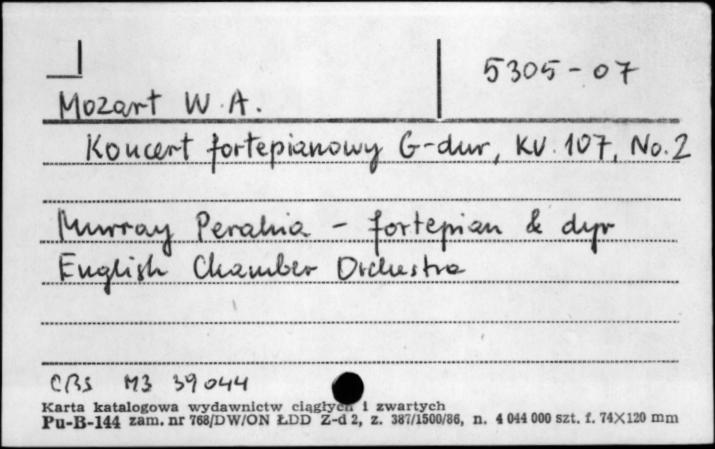 5305-07
Mozart W. A.
Koncert fortepianowy G-dur, KV. 107, No. 2
Murray Perahia - fortepian & dyr
English Chamber Orchestra
CBS M3 39044
Karta katalogowa wydawnictw ciągłych i zwartych
Pu-B-144 zam. nr 768/DW/ON ŁDD Z-d 2, z. 387/1500/86, n. 4 044 000 szt. f. 74X120 mm